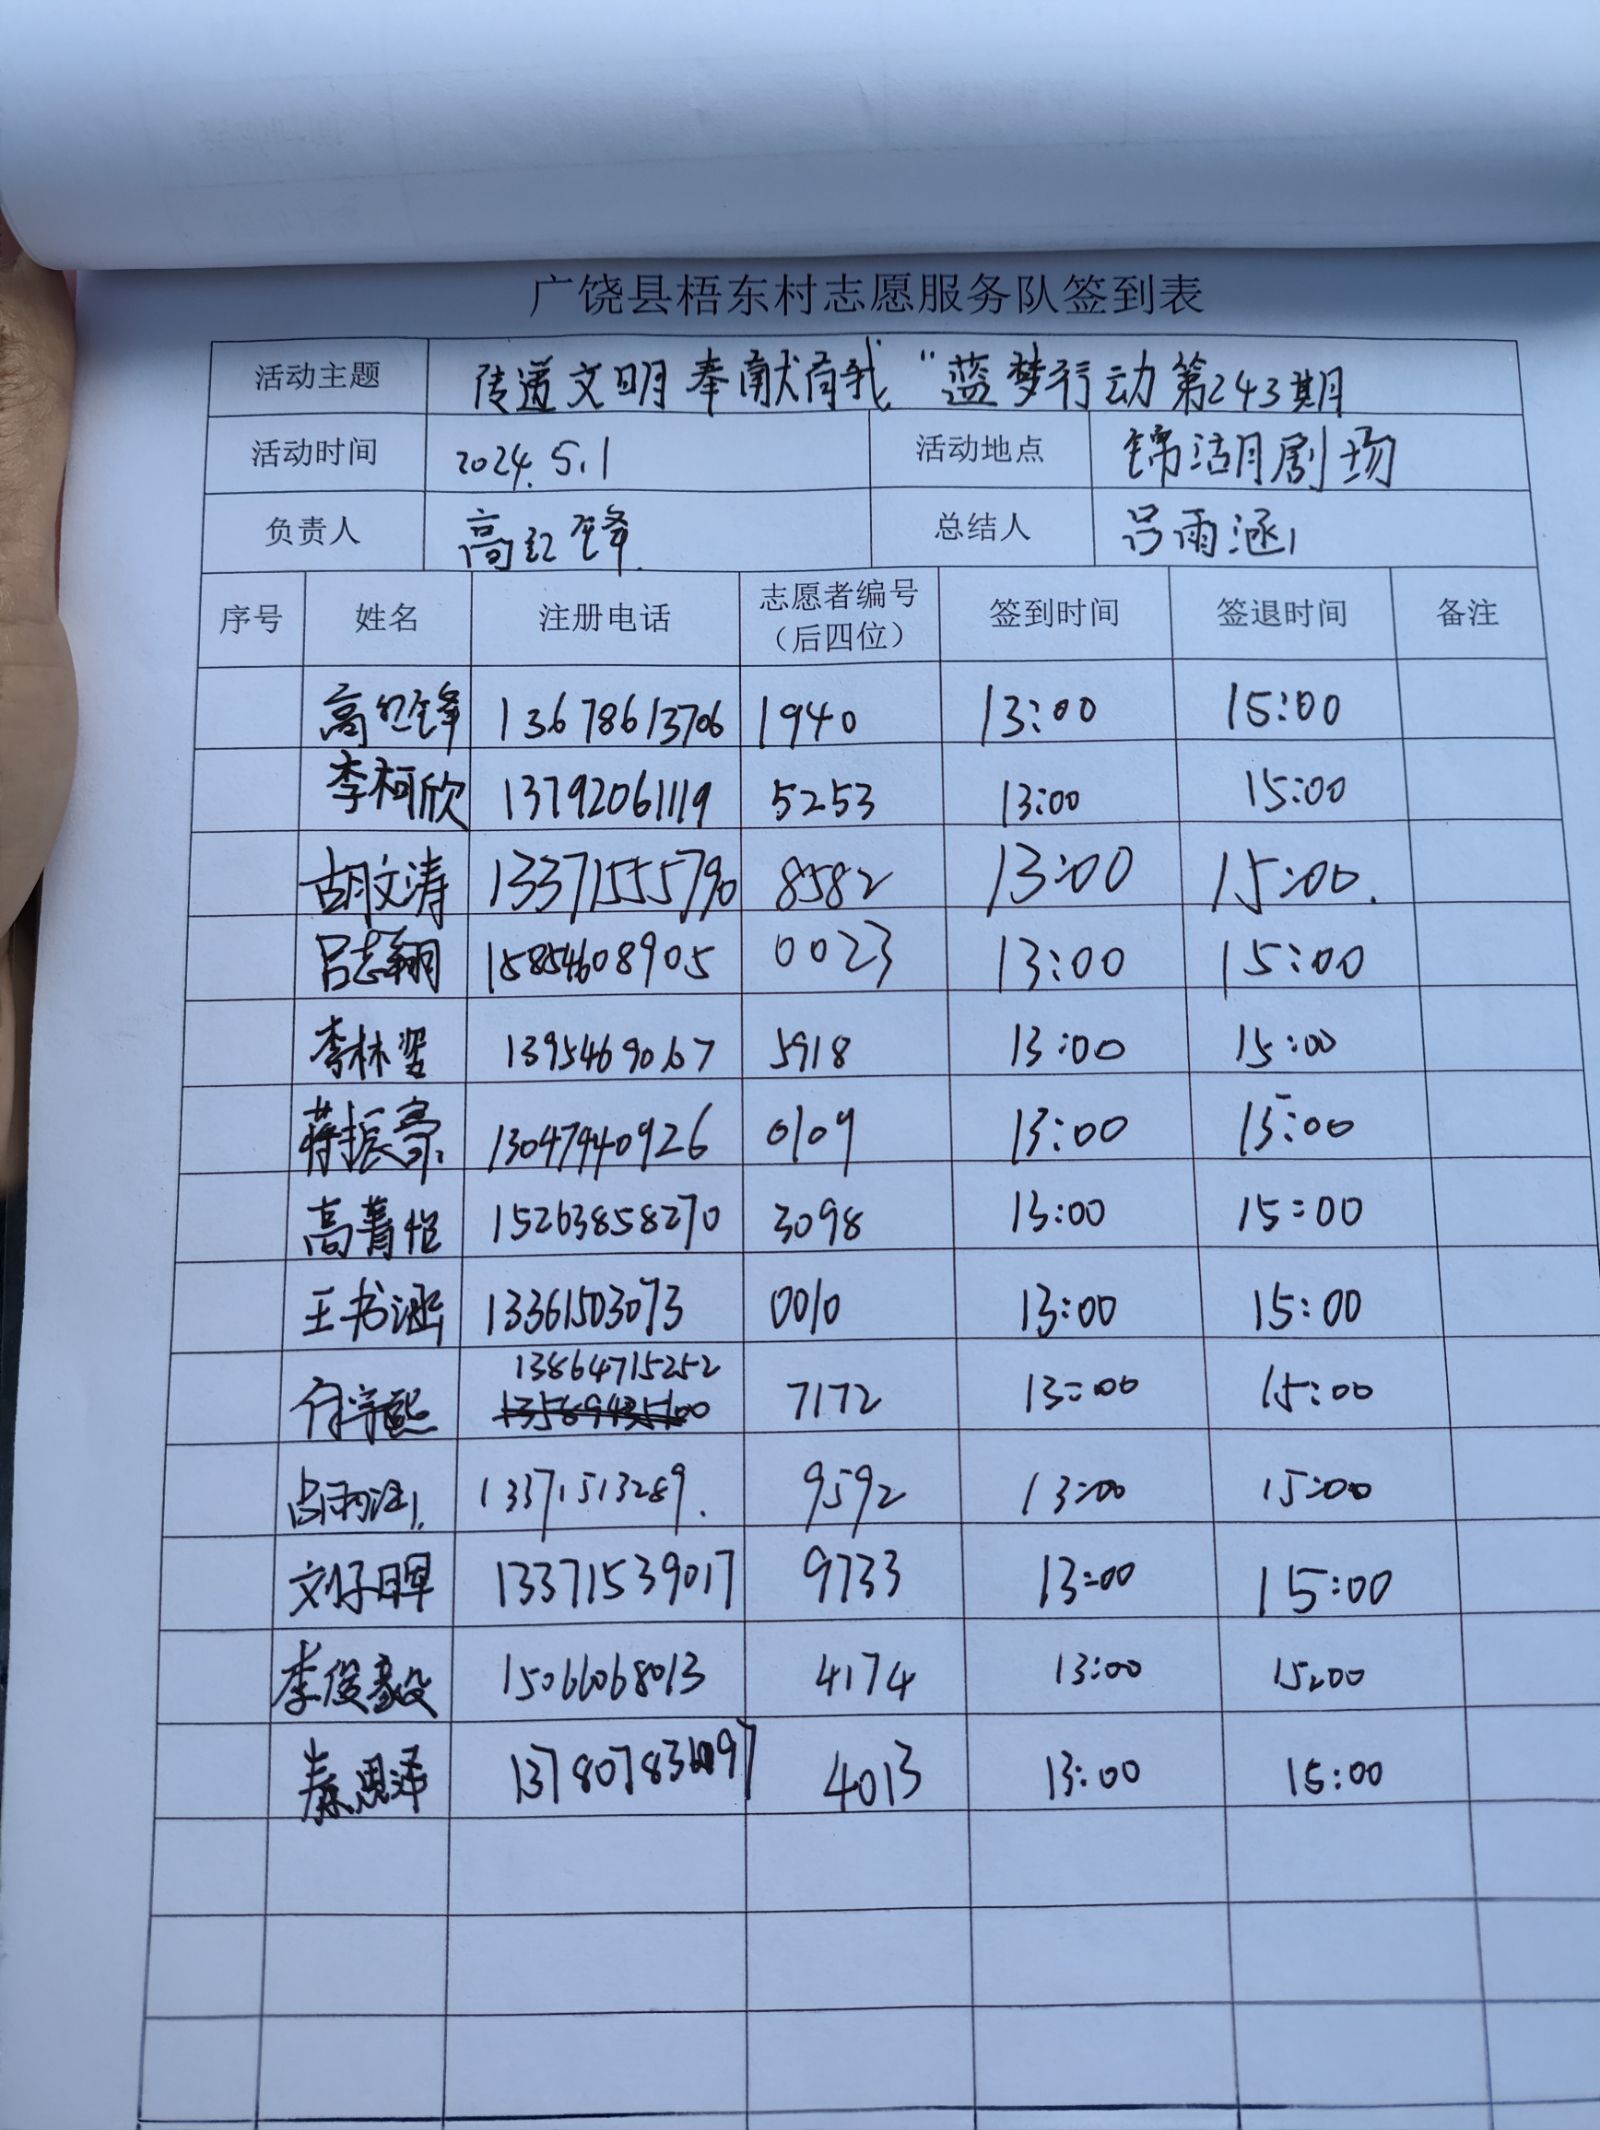 广饶县梧东村志愿服务队签到表
活动主题 传递文明 奉献有我 "蓝梦行动第243期
活动时间 2024.5.1 活动地点 锦湖剧场
负责人 高红锋 总结人 吕雨涵
序号 姓名 注册电话 志愿者编号（后四位） 签到时间 签退时间 备注
高红锋 13678613706 1940 13:00 15:00
李柯欣 13792061119 5253 13:00 15:00
胡文涛 13371555790 8582 13:00 15:00.
吕志翔 15854608905 0023 13:00 15:00
李林 1395469067 5918 13:00 15:00
蒋振豪 13047440926 0109 13:00 15:00
高菁 15263858270 3098 13:00 15:00
王书涵 13361503073 0010 13:00 15:00
13864715252
熙 7172 13:00 15:00
吕雨涵 13371513289. 9592 13:00 15:00
刘子晖 13371539017 9733 13:00 15:00
李俊毅 15066068013 4174 13:00 15:00
秦恩泽 4013 13:00 15:00